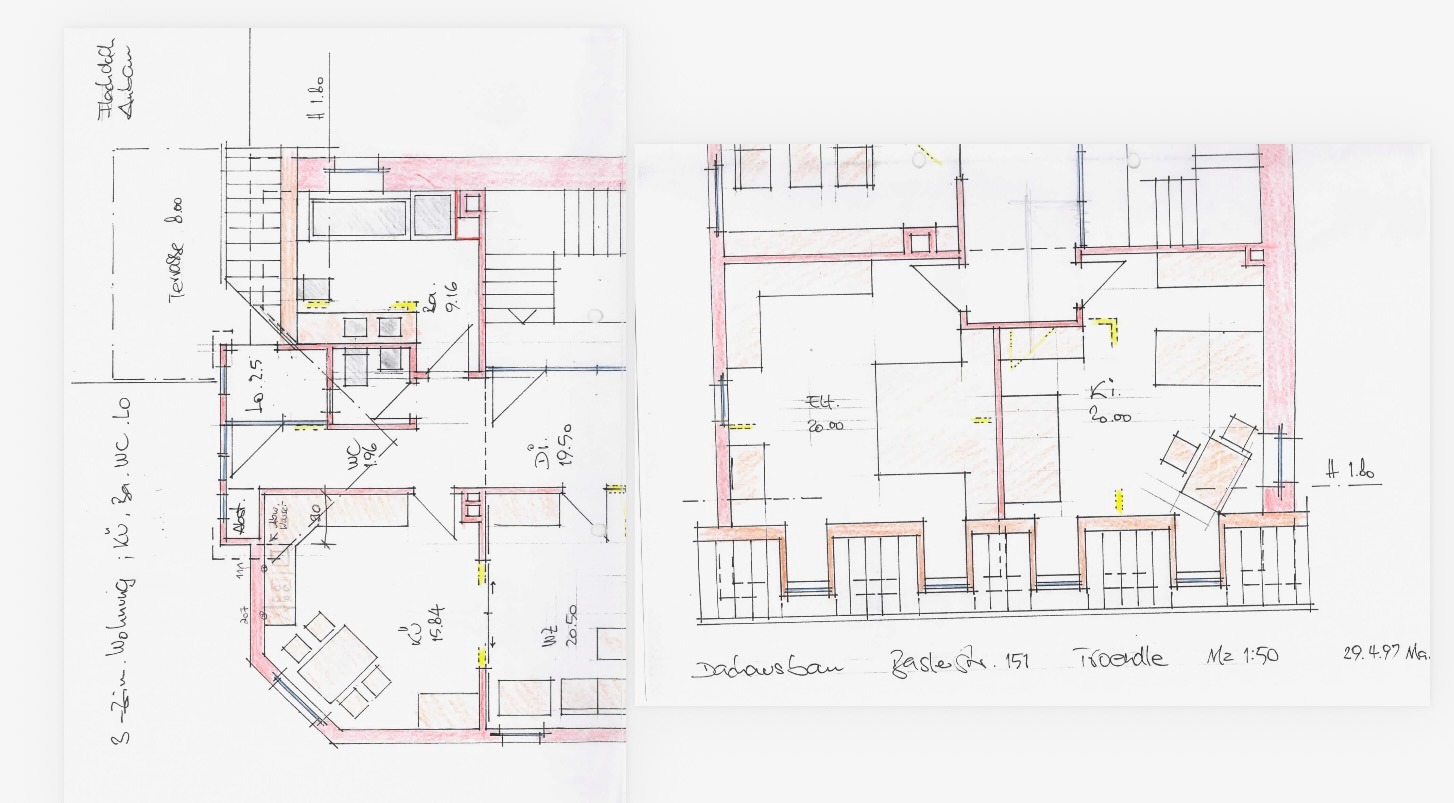 Flachdach
Anbau
H 1.80
Terrasse 8.00
Ba.
9.16
Lo. 2.5
WC
1.96
Di.
19.50
Abst.
90
111
207
KÜ
15.84
WZ
20.50
3-Zim. Wohnung ; KÜ, Ba. WC. Lo
Elt.
20.00
Ki.
20.00
H 1.80
Dachausbau Baslerstr. 151 Troendle Mz 1:50 29.4.97 Ma.